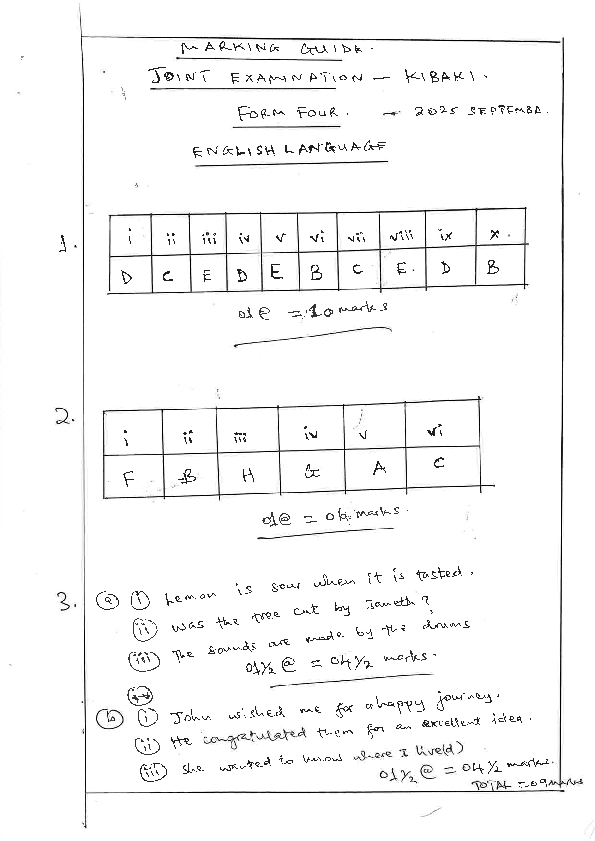 MARKING GUIDE.
JOINT EXAMINATION - KIBAKI.
FORM FOUR. - 2025 SEPTEMBA.
ENGLISH LANGUAGE
1.
i ii iii iv v vi vii viii ix x.
D C E D E B C E. D B
01@ = 10 marks
2.
i ii iii iv v vi
F B H G A C
01@ = 06 marks.
3. (a) (i) Lemon is sour when it is tasted.
(ii) Was the tree cut by Janeth?
(iii) The sounds are made by the drums
01½ @ = 04½ marks.
(b) (i) John wished me for a happy journey.
(ii) He congratulated them for an excellent idea.
(iii) She wanted to know where I live(d)
01½ @ = 04½ marks.
TOTAL = 09 marks